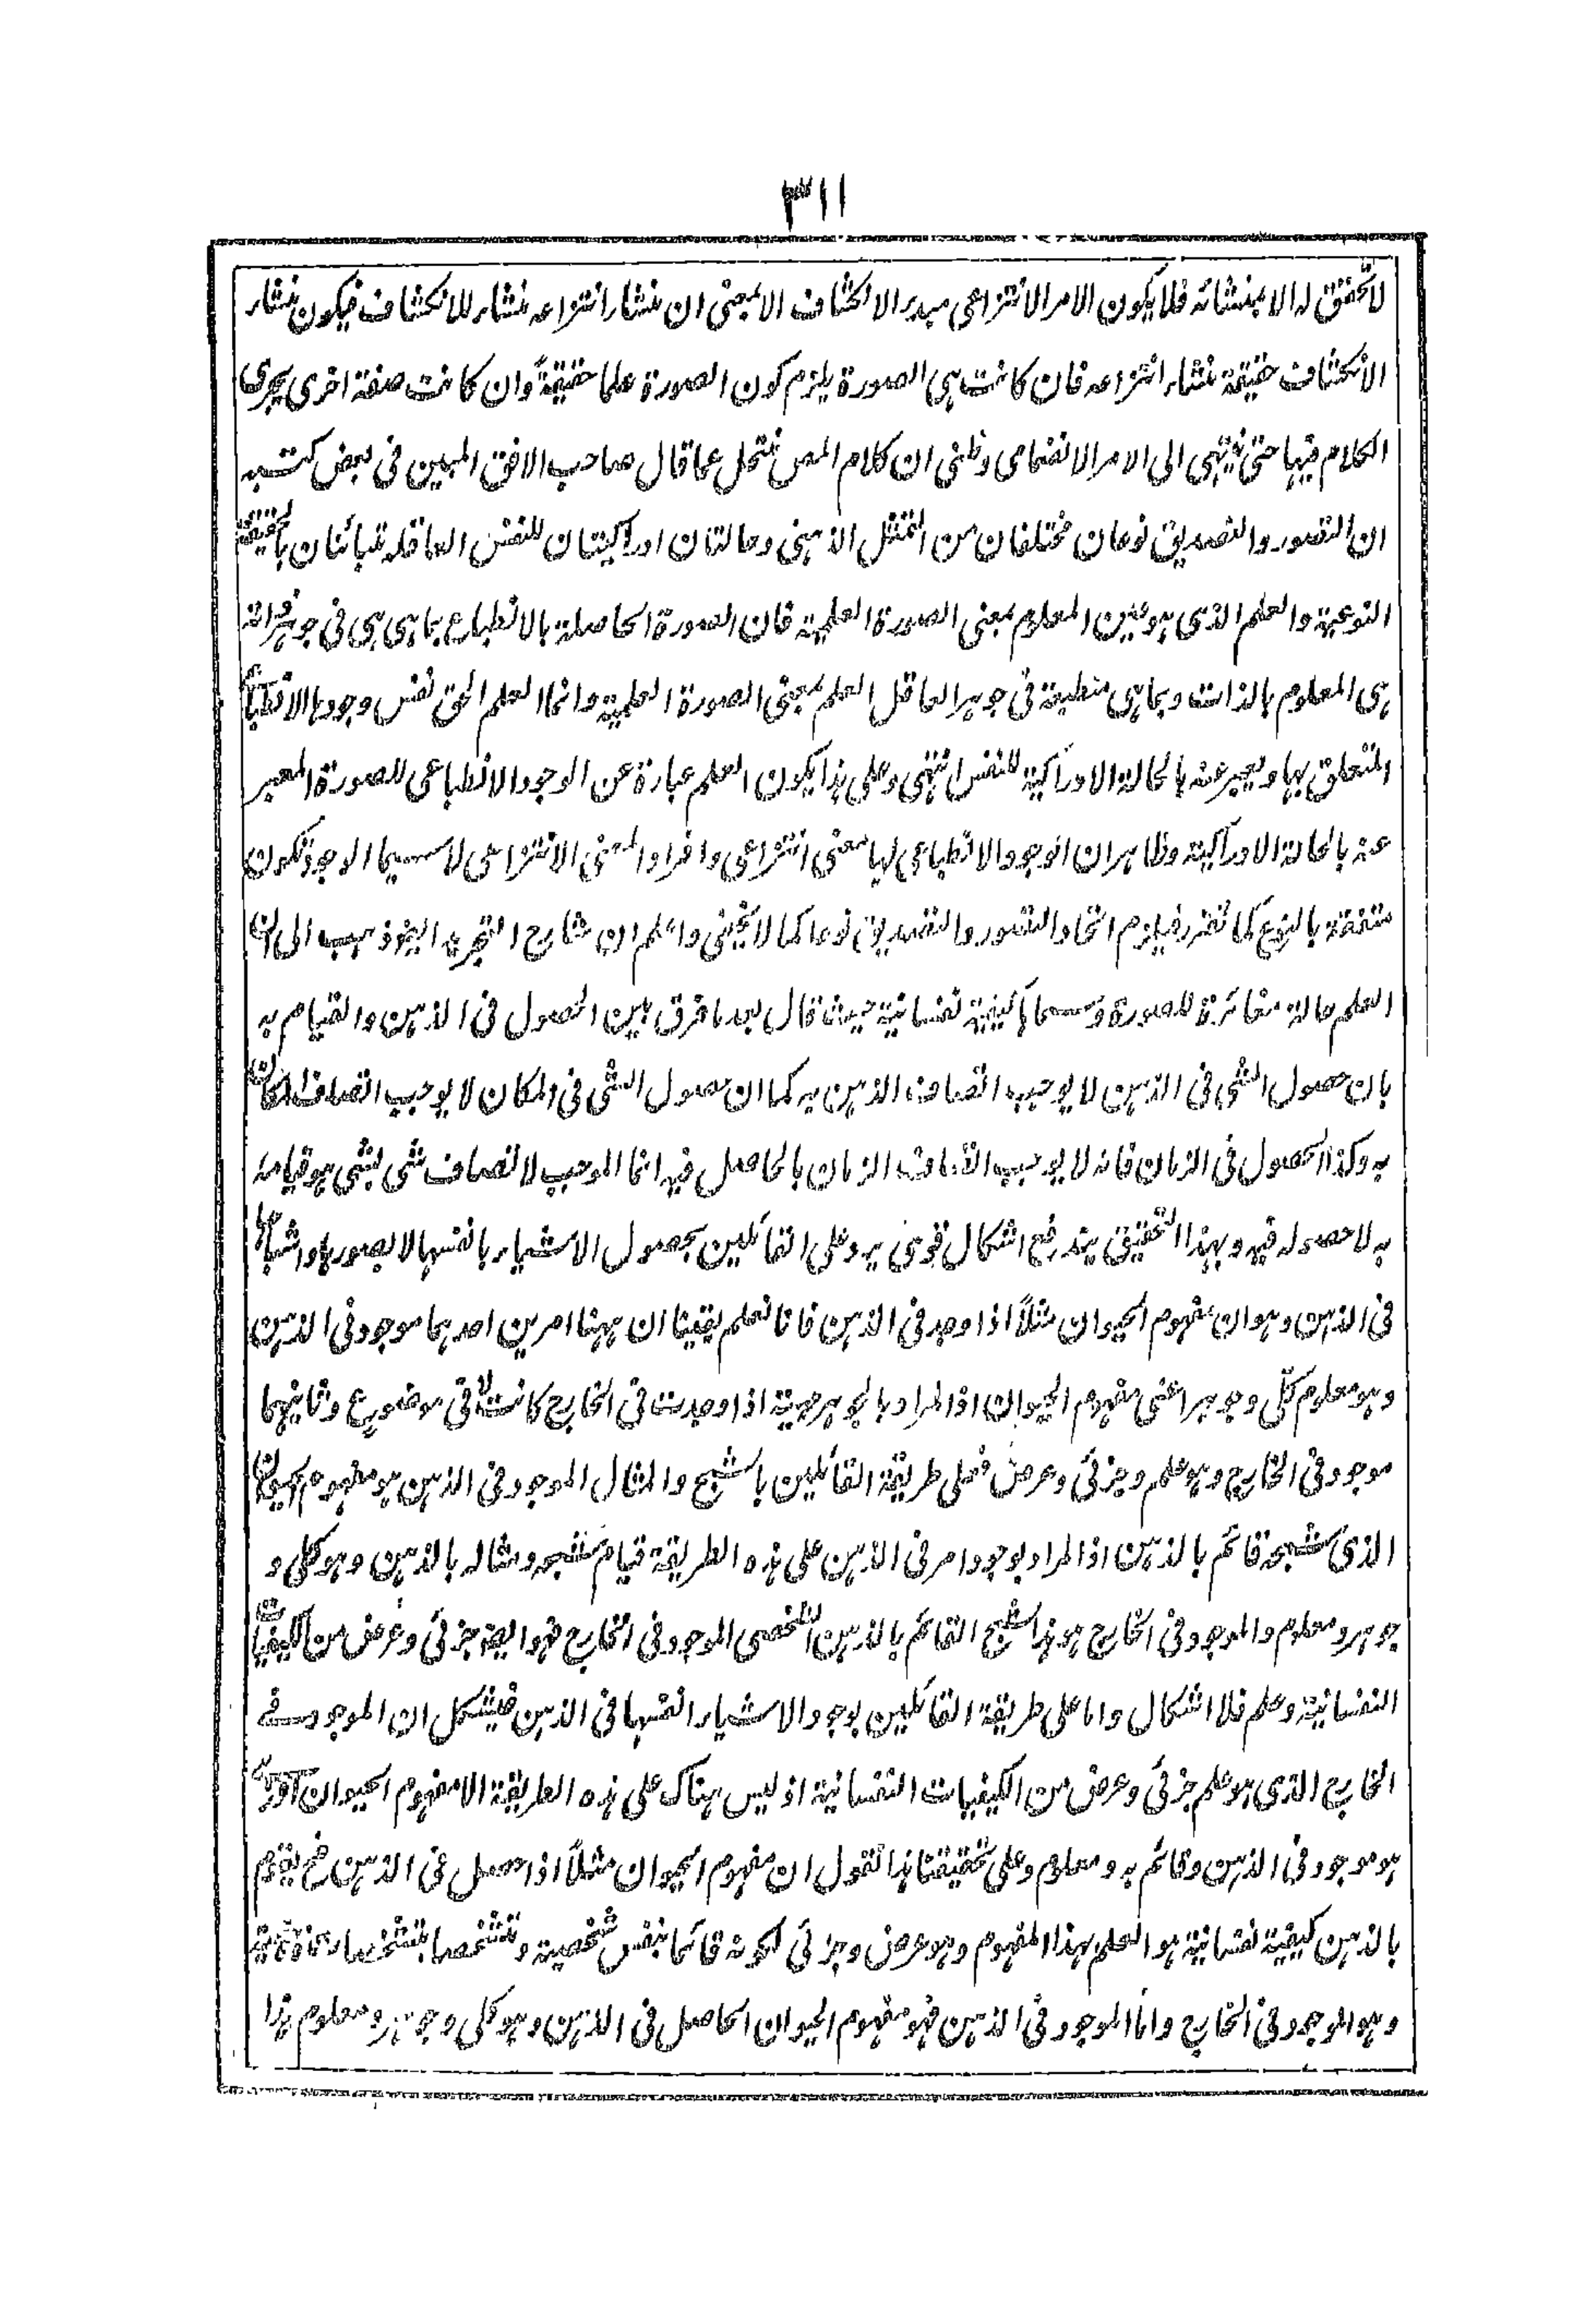 ٣١١
لا تحقق له الا بمنشائه فلا يكون الامر الانتزاعى مبدء الانكشاف الا بمعنى ان منشاء انتزاعه منشاء للانكشاف فيكون منشاء
الانكشاف حقيقة منشاء انتزاعه فان كانت هى الصورة يلزم كون الصورة علما حقيقةً وان كانت صفة اخرى يجرى
الكلام فيها حتى ينتهى الى الامر الانضمامى وظنى ان كلام المص منتحل عما قال صاحب الافق المبين فى بعض كتبه
ان التصور والتصديق نوعان مختلفان من التمثل الذهنى وحالتان ادراكيتان للنفس العاقلة متبائنتان بالحقيقة
النوعية والعلم الذى هو عين المعلوم بمعنى الصورة العلمية فان الصورة الحاصلة بالانطباع بما هى هى فى جوهر ذاته
هى المعلوم بالذات وبما هى منطبعة فى جوهر العاقل العلم بمعنى الصورة العلمية وانما العلم الحق نفس وجودها الانطباعى
المتعلق بها ويعبر عنه بالحالة الادراكية للنفس انتهى وعلى هذا يكون العلم عبارة عن الوجود الانطباعى للصورة المعبر
عنه بالحالة الادراكية وظاهر ان الوجود الانطباعى لها معنى انتزاعى وافراد المعنى الانتزاعى لا سيما الوجود تكون
متفقة بالنوع كما تقرر فيلزم اتحاد التصور والتصديق نوعا كما لا يخفى واعلم ان شارح التجريد ايضا ذهب الى ان
العلم حالة مغائرة للصورة وسماها كيفية نفسانية حيث قال بعد ما فرق بين الحصول فى الذهن والقيام به
بان حصول الشئ فى الذهن لا يوجب اتصاف الذهن به كما ان حصول الشئ فى المكان لا يوجب اتصاف المكان
به وكذا الحصول فى الزمان فانه لا يوجب اتصاف الزمان بالحاصل فيه انما الموجب لاتصاف شئ بشئ هو قيامه
به لا حصوله فيه وبهذا التحقيق يندفع اشكال قوى يرد على القائلين بحصول الاشياء بانفسها لا بصورها واشباحها
فى الذهن وهو ان مفهوم الحيوان مثلاً اذا وجد فى الذهن فانا نعلم يقينا ان ههنا امرين احدهما موجود فى الذهن
وهو معلوم كلّى وجوهر اعنى مفهوم الحيوان اذ المراد بالجوهر مهية اذا وجدت فى الخارج كانت لا فى موضوع وثانيهما
موجود فى الخارج وهو علم وجزئى وعرض فعلى طريقة القائلين بالشبح والمثال الموجود فى الذهن هو مفهوم الحيوان
الذى شبحه قائم بالذهن اذ المراد بوجود امر فى الذهن على هذه الطريقة قيام شبحه ومثاله بالذهن وهو كلى و
جوهر ومعلوم والموجود فى الخارج هو هذا الشبح القائم بالذهن الشخصى الموجود فى الخارج فهو ايضا جزئى وعرض من الكيفيات
النفسانية وعلم فلا اشكال واما على طريقة القائلين بوجود الاشياء انفسها فى الذهن فيشكل ان الموجود فى
الخارج الذى هو علم جزئى وعرض من الكيفيات النفسانية اذ ليس هناك على هذه الطريقة الا مفهوم الحيوان
هو موجود فى الذهن وقائم به ومعلوم وعلى تحقيقنا هذا نقول ان مفهوم الحيوان مثلاً اذا حصل فى الذهن فح يقوم
بالذهن كيفية نفسانية هو العلم بهذا المفهوم وهو عرض وجزئى لكونه قائما بنفس شخصية ومتشخصا بتشخصات
وهو الموجود فى الخارج واما الموجود فى الذهن فهو مفهوم الحيوان الحاصل فى الذهن وهو كلى وجوهر ومعلوم هذا